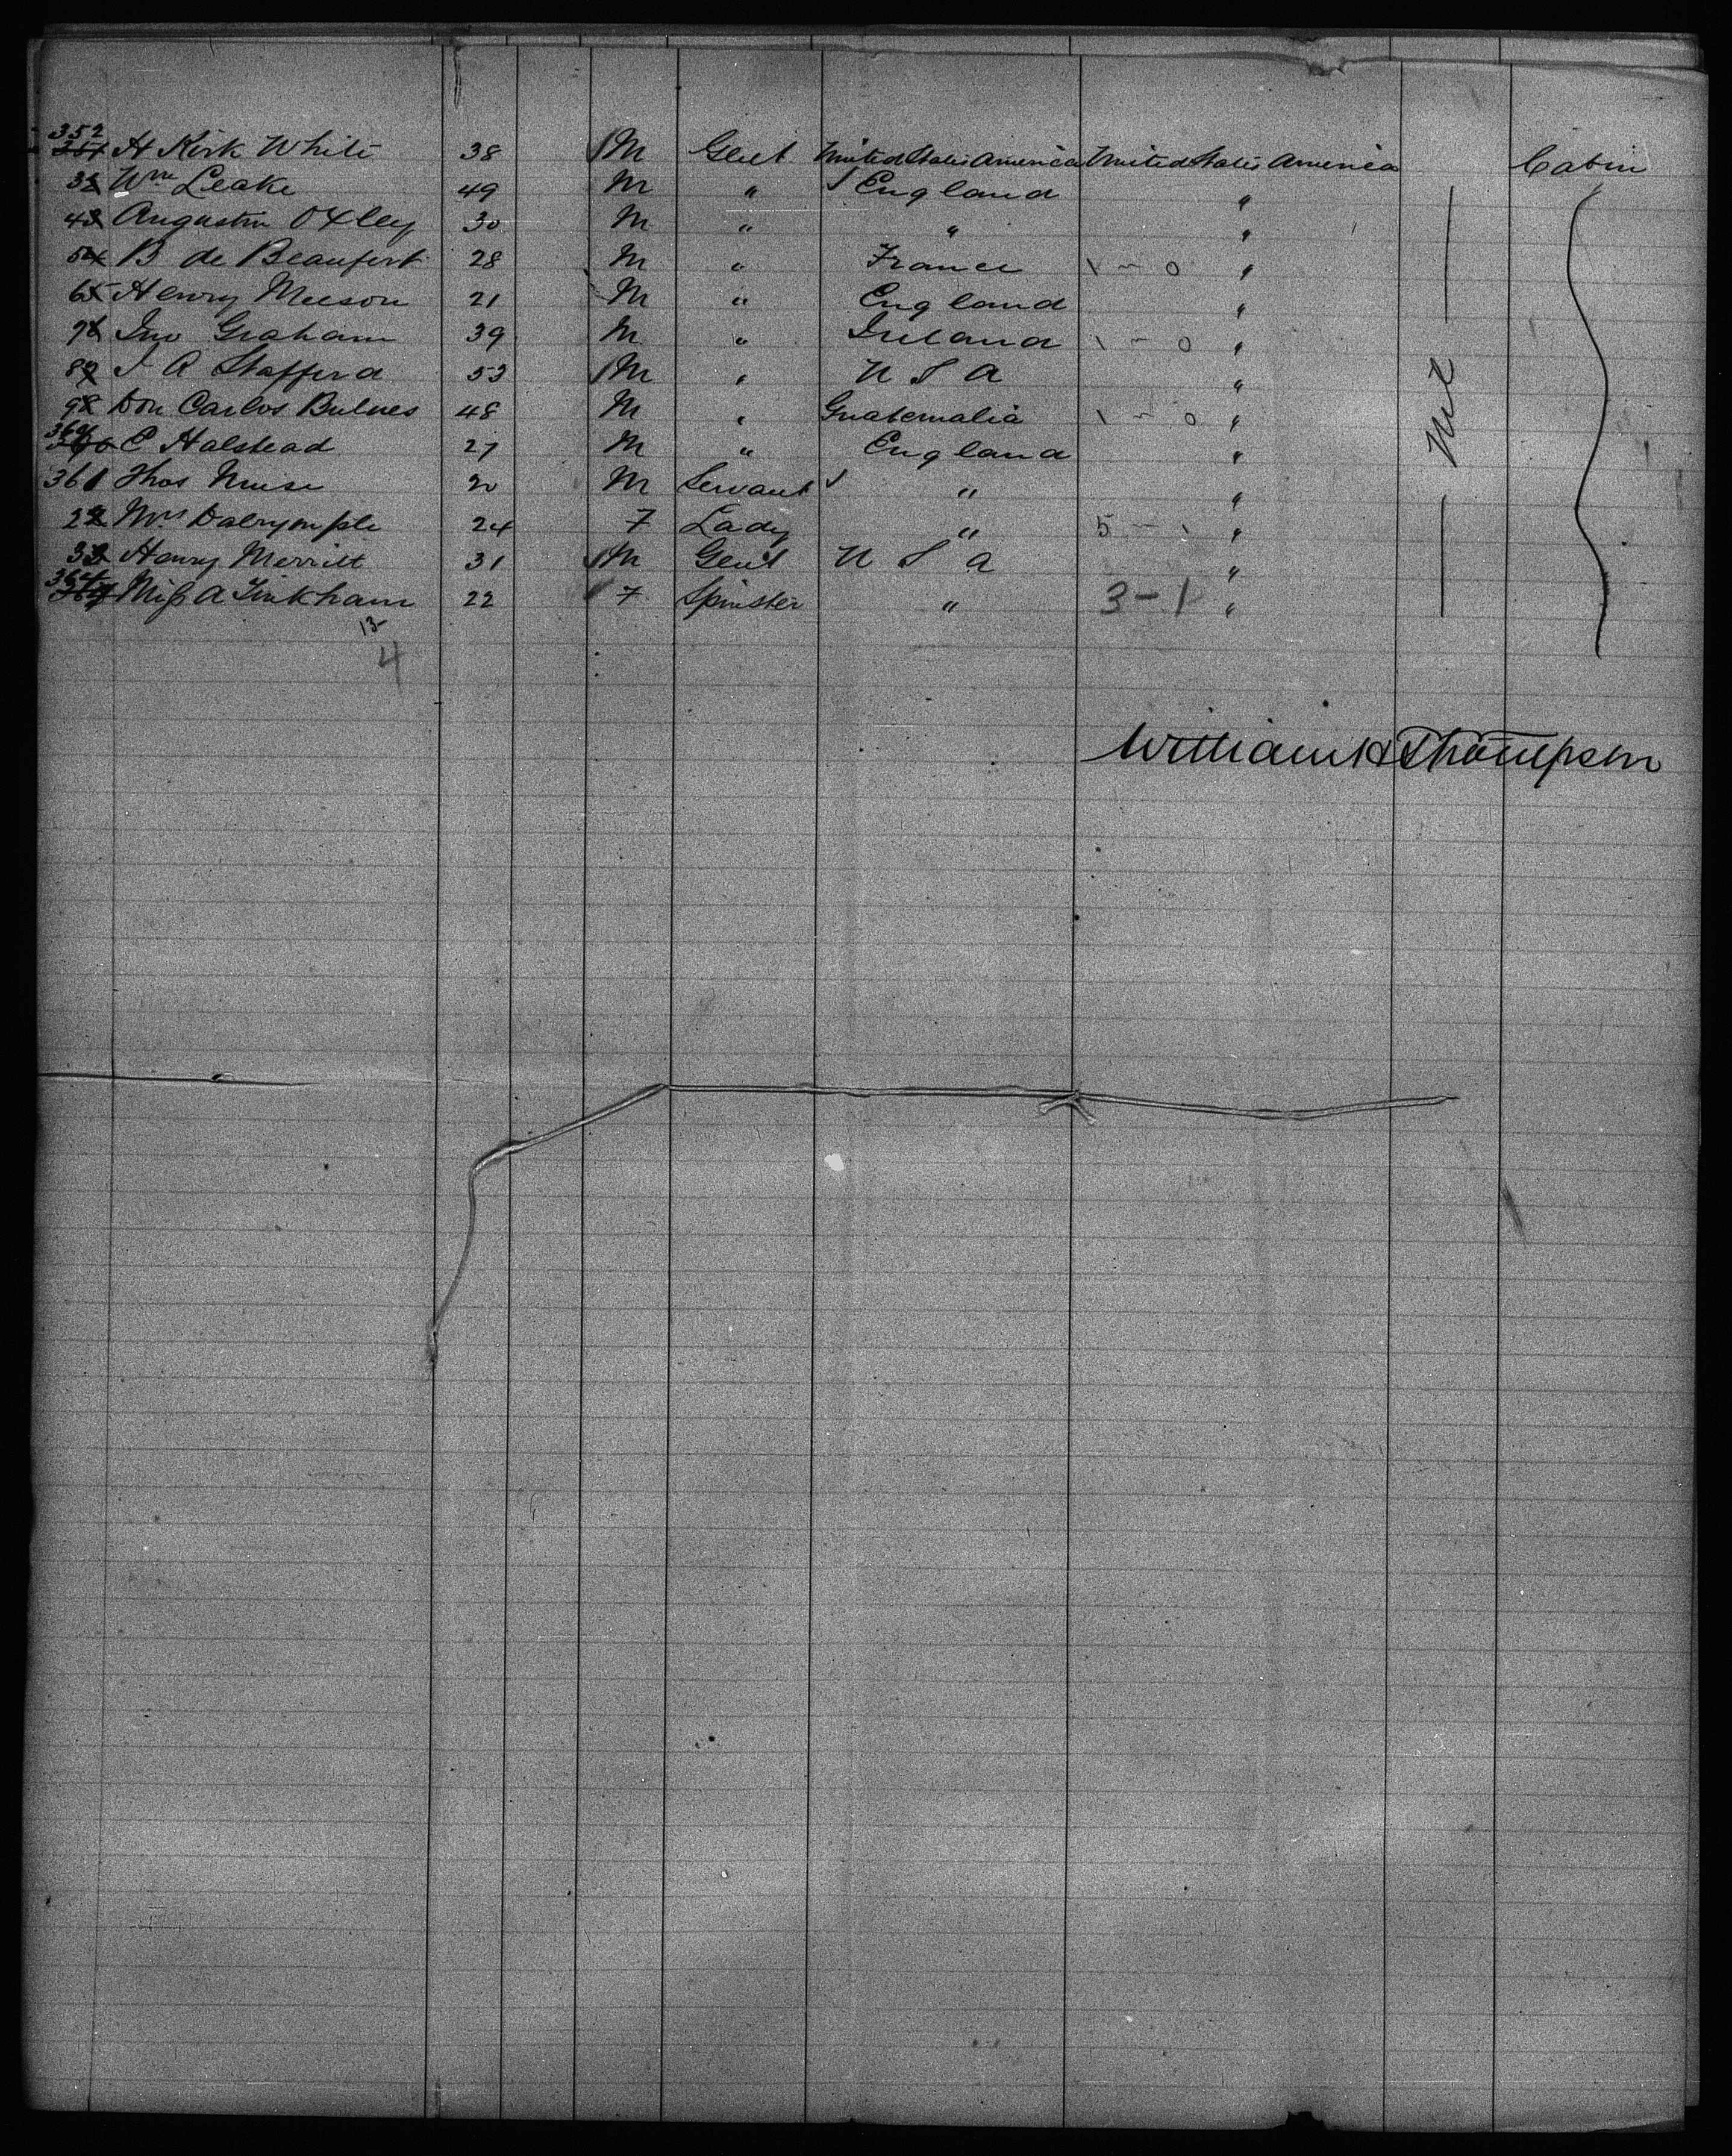 352 H Kirk White 38 M Gent United States America United States America Cabin
3 Wm Leake 49 M " England "
4 Augustin Oxley 30 M " " "
5 B de Beaufort 28 M " France 1 - 0 "
6 Henry Meeson 21 M " England "
7 Jno Graham 39 M " Ireland 1 - 0 "
8 J A Stafford 53 M " U S A "
9 Don Carlos Bulnes 48 M " Guatemalia 1 - 0 "
360 C Halstead 27 M " England "
361 Thos 20 M Servant " "
2 Mrs Dalrymple 24 F Lady " 5 - 1 "
3 Henry Merritt 31 M Gent U S A "
364 Miss A Tinkham 22 F Spinster " 3-1 "
Nil
13
4
William H Thompson